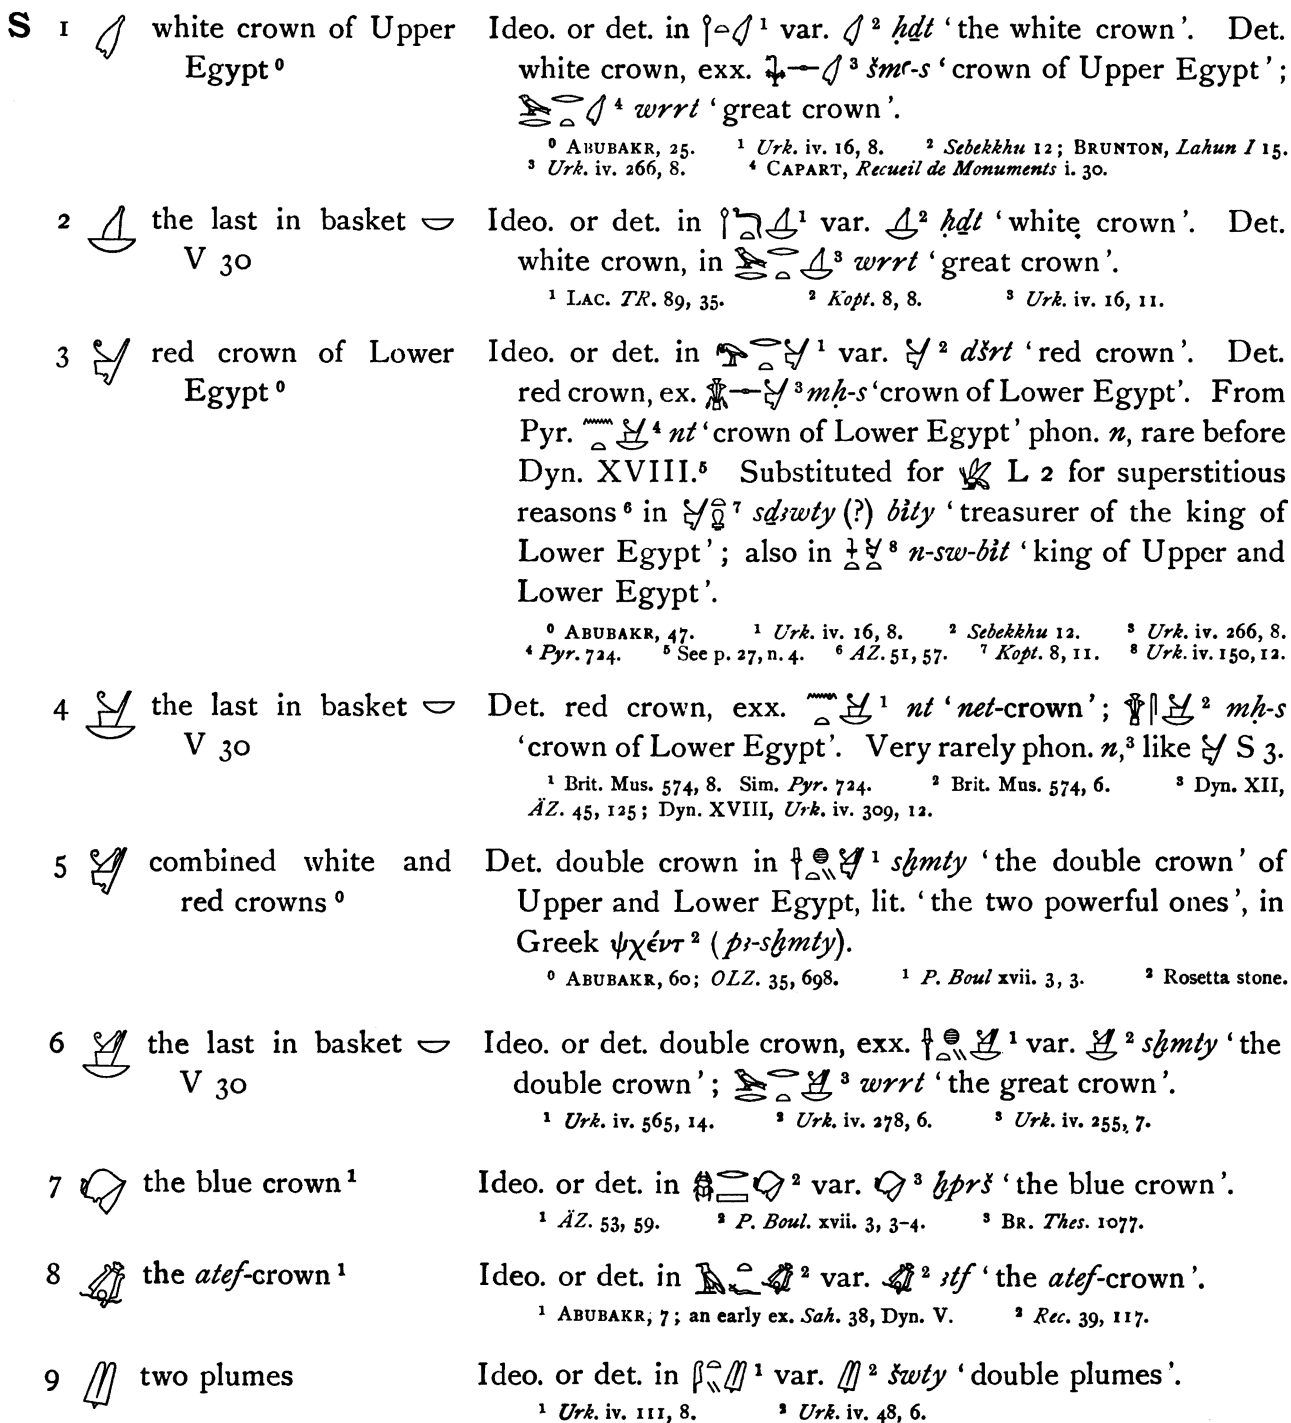 S 1 𓋑 white crown of Upper Ideo. or det. in 𓌉𓏏𓋑 ¹ var. 𓋑 ² ḥḏt ‘the white crown’. Det.
Egypt ⁰ white crown, exx. 𓋴𓋑 ³ šmꜥ-s ‘crown of Upper Egypt’;
𓅨𓂋𓂋𓏏𓋑 ⁴ wrrt ‘great crown’.
⁰ ABUBAKR, 25. ¹ Urk. iv. 16, 8. ² Sebekkhu 12; BRUNTON, Lahun I 15.
³ Urk. iv. 266, 8. ⁴ CAPART, Recueil de Monuments i. 30.
2 𓋒 the last in basket 𓎟 Ideo. or det. in 𓌉𓆓𓏏𓋒 ¹ var. 𓋒 ² ḥḏt ‘white crown’. Det.
V 30 white crown, in 𓅨𓂋𓂋𓏏𓋒 ³ wrrt ‘great crown’.
¹ LAC. TR. 89, 35. ² Kopt. 8, 8. ³ Urk. iv. 16, 11.
3 𓋔 red crown of Lower Ideo. or det. in 𓅟𓂋𓏏𓋔 ¹ var. 𓋔 ² dšrt ‘red crown’. Det.
Egypt ⁰ red crown, ex. 𓎔𓊃𓋔 ³ mḥ-s ‘crown of Lower Egypt’. From
Pyr. 𓈖𓏏𓋕 ⁴ nt ‘crown of Lower Egypt’ phon. n, rare before
Dyn. XVIII.⁵ Substituted for 𓆤 L 2 for superstitious
reasons ⁶ in 𓋔𓋩 ⁷ sḏꜣwty (?) bı͗ty ‘treasurer of the king of
Lower Egypt’; also in 𓇓𓏏𓋔𓏏 ⁸ n-sw-bı͗t ‘king of Upper and
Lower Egypt’.
⁰ ABUBAKR, 47. ¹ Urk. iv. 16, 8. ² Sebekkhu 12. ³ Urk. iv. 266, 8.
⁴ Pyr. 724. ⁵ See p. 27, n. 4. ⁶ ÄZ. 51, 57. ⁷ Kopt. 8, 11. ⁸ Urk. iv. 150, 12.
4 𓋕 the last in basket 𓎟 Det. red crown, exx. 𓈖𓏏𓋕 ¹ nt ‘net-crown’; 𓎔𓋴𓋕 ² mḥ-s
V 30 ‘crown of Lower Egypt’. Very rarely phon. n,³ like 𓋔 S 3.
¹ Brit. Mus. 574, 8. Sim. Pyr. 724. ² Brit. Mus. 574, 6. ³ Dyn. XII,
ÄZ. 45, 125; Dyn. XVIII, Urk. iv. 309, 12.
5 𓋖 combined white and Det. double crown in 𓌂𓐍𓏏𓏭𓋖 ¹ sḫmty ‘the double crown’ of
red crowns ⁰ Upper and Lower Egypt, lit. ‘the two powerful ones’, in
Greek ψχέντ ² (pꜣ-sḫmty).
⁰ ABUBAKR, 60; OLZ. 35, 698. ¹ P. Boul xvii. 3, 3. ² Rosetta stone.
6 𓋗 the last in basket 𓎟 Ideo. or det. double crown, exx. 𓌂𓐍𓏏𓏭𓋗 ¹ var. 𓋗 ² sḫmty ‘the
V 30 double crown’; 𓅨𓂋𓂋𓏏𓋗 ³ wrrt ‘the great crown’.
¹ Urk. iv. 565, 14. ² Urk. iv. 278, 6. ³ Urk. iv. 255, 7.
7 𓋙 the blue crown ¹ Ideo. or det. in 𓆣𓂋𓈙𓋙 ² var. 𓋙 ³ ḫprš ‘the blue crown’.
¹ ÄZ. 53, 59. ² P. Boul. xvii. 3, 3-4. ³ BR. Thes. 1077.
8 𓋚 the atef-crown ¹ Ideo. or det. in 𓄿𓏏𓆑𓋚 ² var. 𓋚 ² ꜣtf ‘the atef-crown’.
¹ ABUBAKR, 7; an early ex. Sah. 38, Dyn. V. ² Rec. 39, 117.
9 𓋛 two plumes Ideo. or det. in 𓆄𓏏𓏭𓋛 ¹ var. 𓋛 ² šwty ‘double plumes’.
¹ Urk. iv. 111, 8. ² Urk. iv. 48, 6.